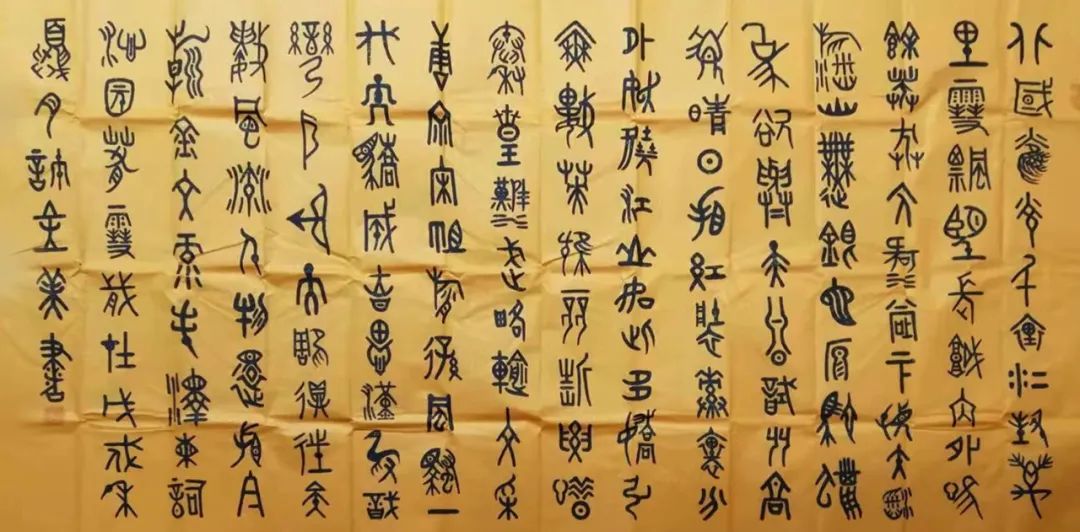 北國風光千里冰封萬
里雪飄望長城內外唯
餘莽莽大河上下頓失滔
滔山舞銀蛇原馳蠟
象欲與天公試比高
須晴日看紅裝素裹分
外妖嬈江山如此多嬌引
無數英雄競折腰惜
秦皇漢武略輸文采
唐宗宋祖稍遜風騷一
代天驕成吉思汗只識
彎弓射大雕俱往矣
數風流人物還看今
朝金文毛澤東詞
沁園春雪歲在戊戌年
夏月美書